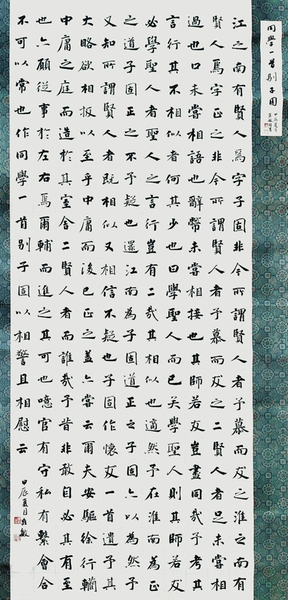 同學一首別子固
江之南有賢人焉字子固非今所謂賢人者予慕而友之淮之南有
賢人焉字正之非今所謂賢人者予慕而友之二賢人者足未嘗相
過也口未嘗相語也辭幣未嘗相接也其師若友豈盡同哉予考其
言行其不相似者何其少也曰學聖人而已矣學聖人則其師若友
必學聖人者聖人之言行豈有二哉其相似也適然予在淮南為正
之道子固正之不予疑也還江南為子固道正之子固亦以為然予
又知所謂賢人者既相似又相信不疑也子固作懷友一首遺予其
大略欲相扳以至乎中庸而後已正之蓋亦嘗云爾夫安驅徐行轥
中庸之庭而造於其室舍二賢人者而誰哉予昔非敢自必其有至
也亦願從事於左右焉爾輔而進之其可也噫官有守私有繫會合
不可以常也作同學一首別子固以相警且相慰云 甲辰夏月